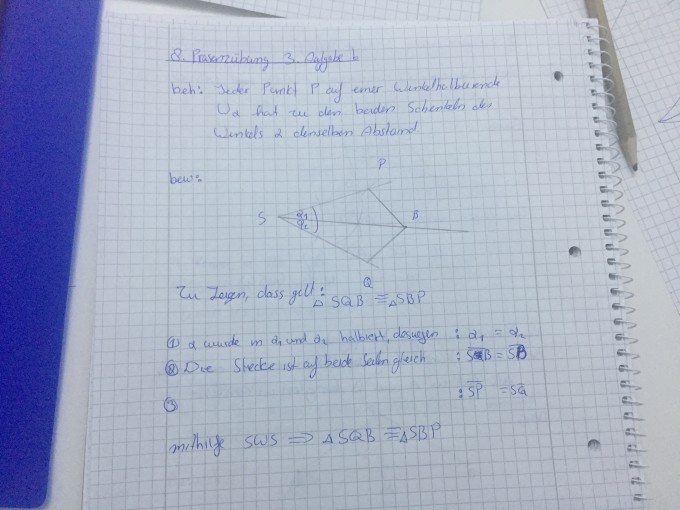 8. Präsenzübung 3. Aufgabe b
beh: Jeder Punkt P auf einer Winkelhalbierende
Wα hat zu den beiden Schenkeln des
Winkels α denselben Abstand
bew:
P
S α1 B
α2
Q
Zu zeigen, dass gilt: △SQB ≡ △SBP
① α wurde in α1 und α2 halbiert, deswegen : α1 = α2
② Die Strecke ist auf beide Seiten gleich : SB = SB
③ : SP = SQ
mithilfe SWS ⇒ △SQB ≡ △SBP